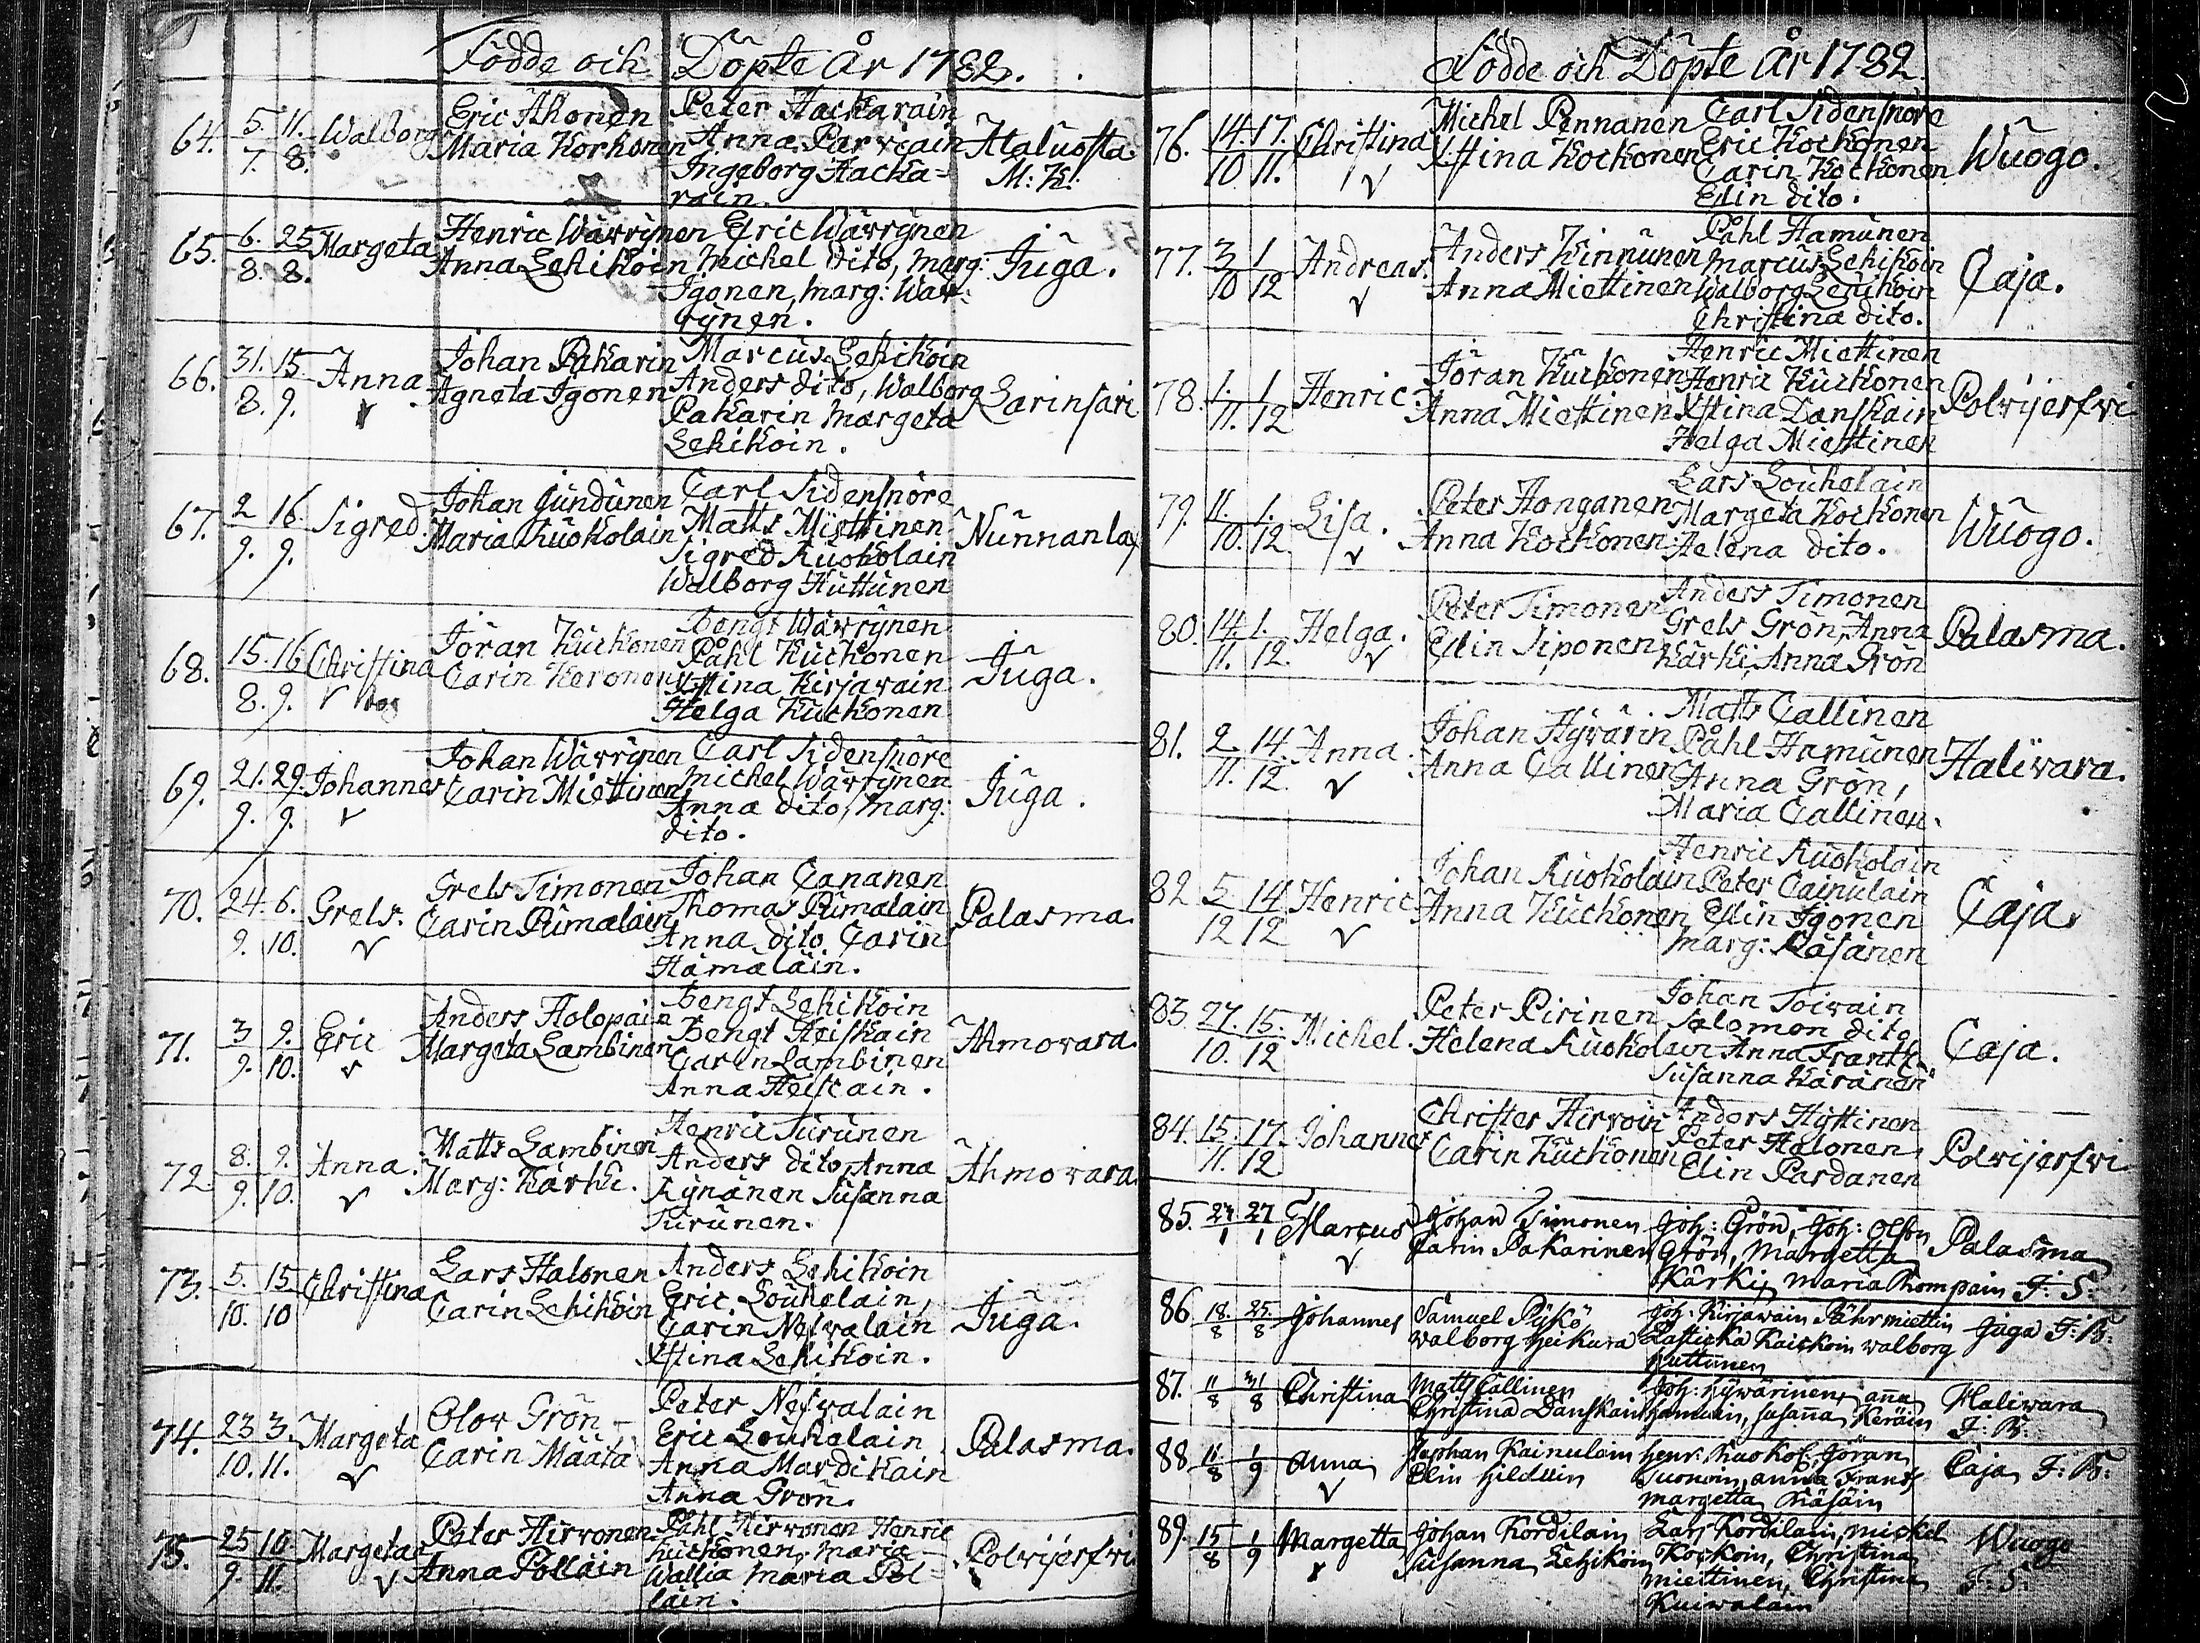 Födde och Döpte År 1782.
64. 5. 11. Walborg Eric Ahonen Peter Hackarain
7. 8. Maria Korhonen Anna Parviain Haluosta.
Ingeborg Hacka= M: K:
rain.
65. 6. 25 Margeta Henric Wärrÿnen Eric Wärrÿnen
8. 8. Anna Lehikoin Michel dito, Marg: Juga.
Igonen, Marg: Wär=
rÿnen.
66. 31. 15 Anna Johan Pakarin Marcus Lehikoin
8. 9. Agneta Igonen Anders dito, Walborg Larinsari
Pakarin Margeta
Lehikoin.
67. 2 16. Sigred Johan Gundunen Carl Sidensnöre
9. 9. Maria Kuokolain Matts Miettinen Nunnanlax
Sigred Kuokolain
Walborg Huttunen
68. 15. 16 Christina Jöran Kuckonen Bengt Wärrÿnen
8. 9. Carin Keronen Påhl Kuckonen Juga.
Xstina Kirjavain
Helga Kuckonen
69. 21. 29. Johannes Johan Wärrÿnen Carl Sidensnöre
9. 9. Carin Miettinen Michel Wärrÿnen Juga.
Anna dito, Marg:
dito.
70. 24. 6. Grels. Grels Timonen Johan Cananen
9. 10. Carin Pumalain Thomas Pumalain Palasma.
Anna dito Carin
Hämäläin.
71. 3 9. Eric Anders Holopain Bengt Lehikoin
9. 10. Margeta Lambinen Bengt Heiskain Ahmovara.
Carin Lambinen
Anna Heiscain.
72. 8. 9. Anna. Matts Lambinen Henric Turunen
9. 10. Marg: Kärki. Anders dito, Anna Ahmovara.
Rÿnänen Susanna
Turunen.
73. 5. 15 Christina Lars Halonen Anders Lehikoin
10. 10 Carin Lehikoin Eric Louhelain, Juga.
Carin Nevalain
Xstina Lehikoin.
74. 23 3. Margeta Olov Grön Peter Nevalain
10. 11. Carin Määtä Eric Louhelain Palasma.
Anna Mardikain
Anna Grön.
75. 25 10 Margeta Peter Hirvonen Påhl Hirvonen Henric
9. 11. Anna Polläin Kuckonen, Maria Polvijerfvi
Wallia Maria Pol=
läin.
Födde och Döpte År 1782
76. 14. 17. Christina Michel Pennanen Carl Sidensnöre
10 11. Xstina Kockonen Eric Kockonen Wuogo.
Carin Kockonen
Elin dito.
77. 3 1 Andreas. Anders Kinnunen Påhl Hamunen
10 12 Anna Miettinen Marcus Lehikoin Caja.
Walborg Lehikoin
Christina dito.
78. 1. 1 Henric. Jöran Kuckonen Henric Miettinen
11. 12 Anna Miettinen Henric Kuckonen Polvijerfvi
Xstina Danskain
Helga Miettinen
79. 11. 1. Lisa. Peter Honganen Lars Louhelain
10. 12 Anna Kockonen. Margeta Kockonen Wuogo.
Helena dito.
80. 14. 1. Helga. Peter Timonen Anders Timonen
11. 12. Elin Siponen Grels Grön, Anna Palasma.
Kärki, Anna Grön
81. 2 14. Anna. Johan Hÿvärin Matts Callinen
11. 12. Anna Callinen Påhl Hamunen Halivara.
Anna Grön,
Maria Callinen.
82 5 14 Henric Johan Kuokolain Henric Kuokolain
12 12 Anna Kuckonen Peter Cainulain Caja.
Elin Igonen
Marg: Räsänen
83. 27. 15. Michel. Peter Pirinen Johan Toivain
10. 12 Helena Kuokolain Salomon dito Caja.
Anna Frantz
Susanna Käränen
84. 15. 17. Johannes Christer Hirvoin Anders Hÿttinen
11. 12 Carin Kuckonen Peter Halonen Polvijerfvi
Elin Pardanen
85. 27. 27 Marcus Johan Timonen Joh: Grön, Joh: Olson
1 1 Carin Pakarinen Grön, Margetta Palasma
Kärki, Maria Romppain F: S:
86. 18. 25. Johannes Samuel Pÿkö Joh: Kirjavain Påhr Miettin Juga F: B:
8 8 Walborg Heikura Kaickoin Walborg
Huttunen
87. 11 31 Christina Matts Callinen Joh: Hÿwärinen, Anna Haliwara
8 8 Christina Danskain Hamuin, Susanna Keräin F: B:
88. 11 1 Anna Stephan Kainulain Henr: Kuokol, Jöran Caja F: B:
8 9 Elin Hilduin Anna Frants
Margetta Räsäin
89. 15 1 Margetta Johan Kordilain Lars Kordilain, Mickel Wuogo
8 9 Susanna Lehikoin Kockoin, Christina F: S:
Miettinen, Christina
Kuiwalain